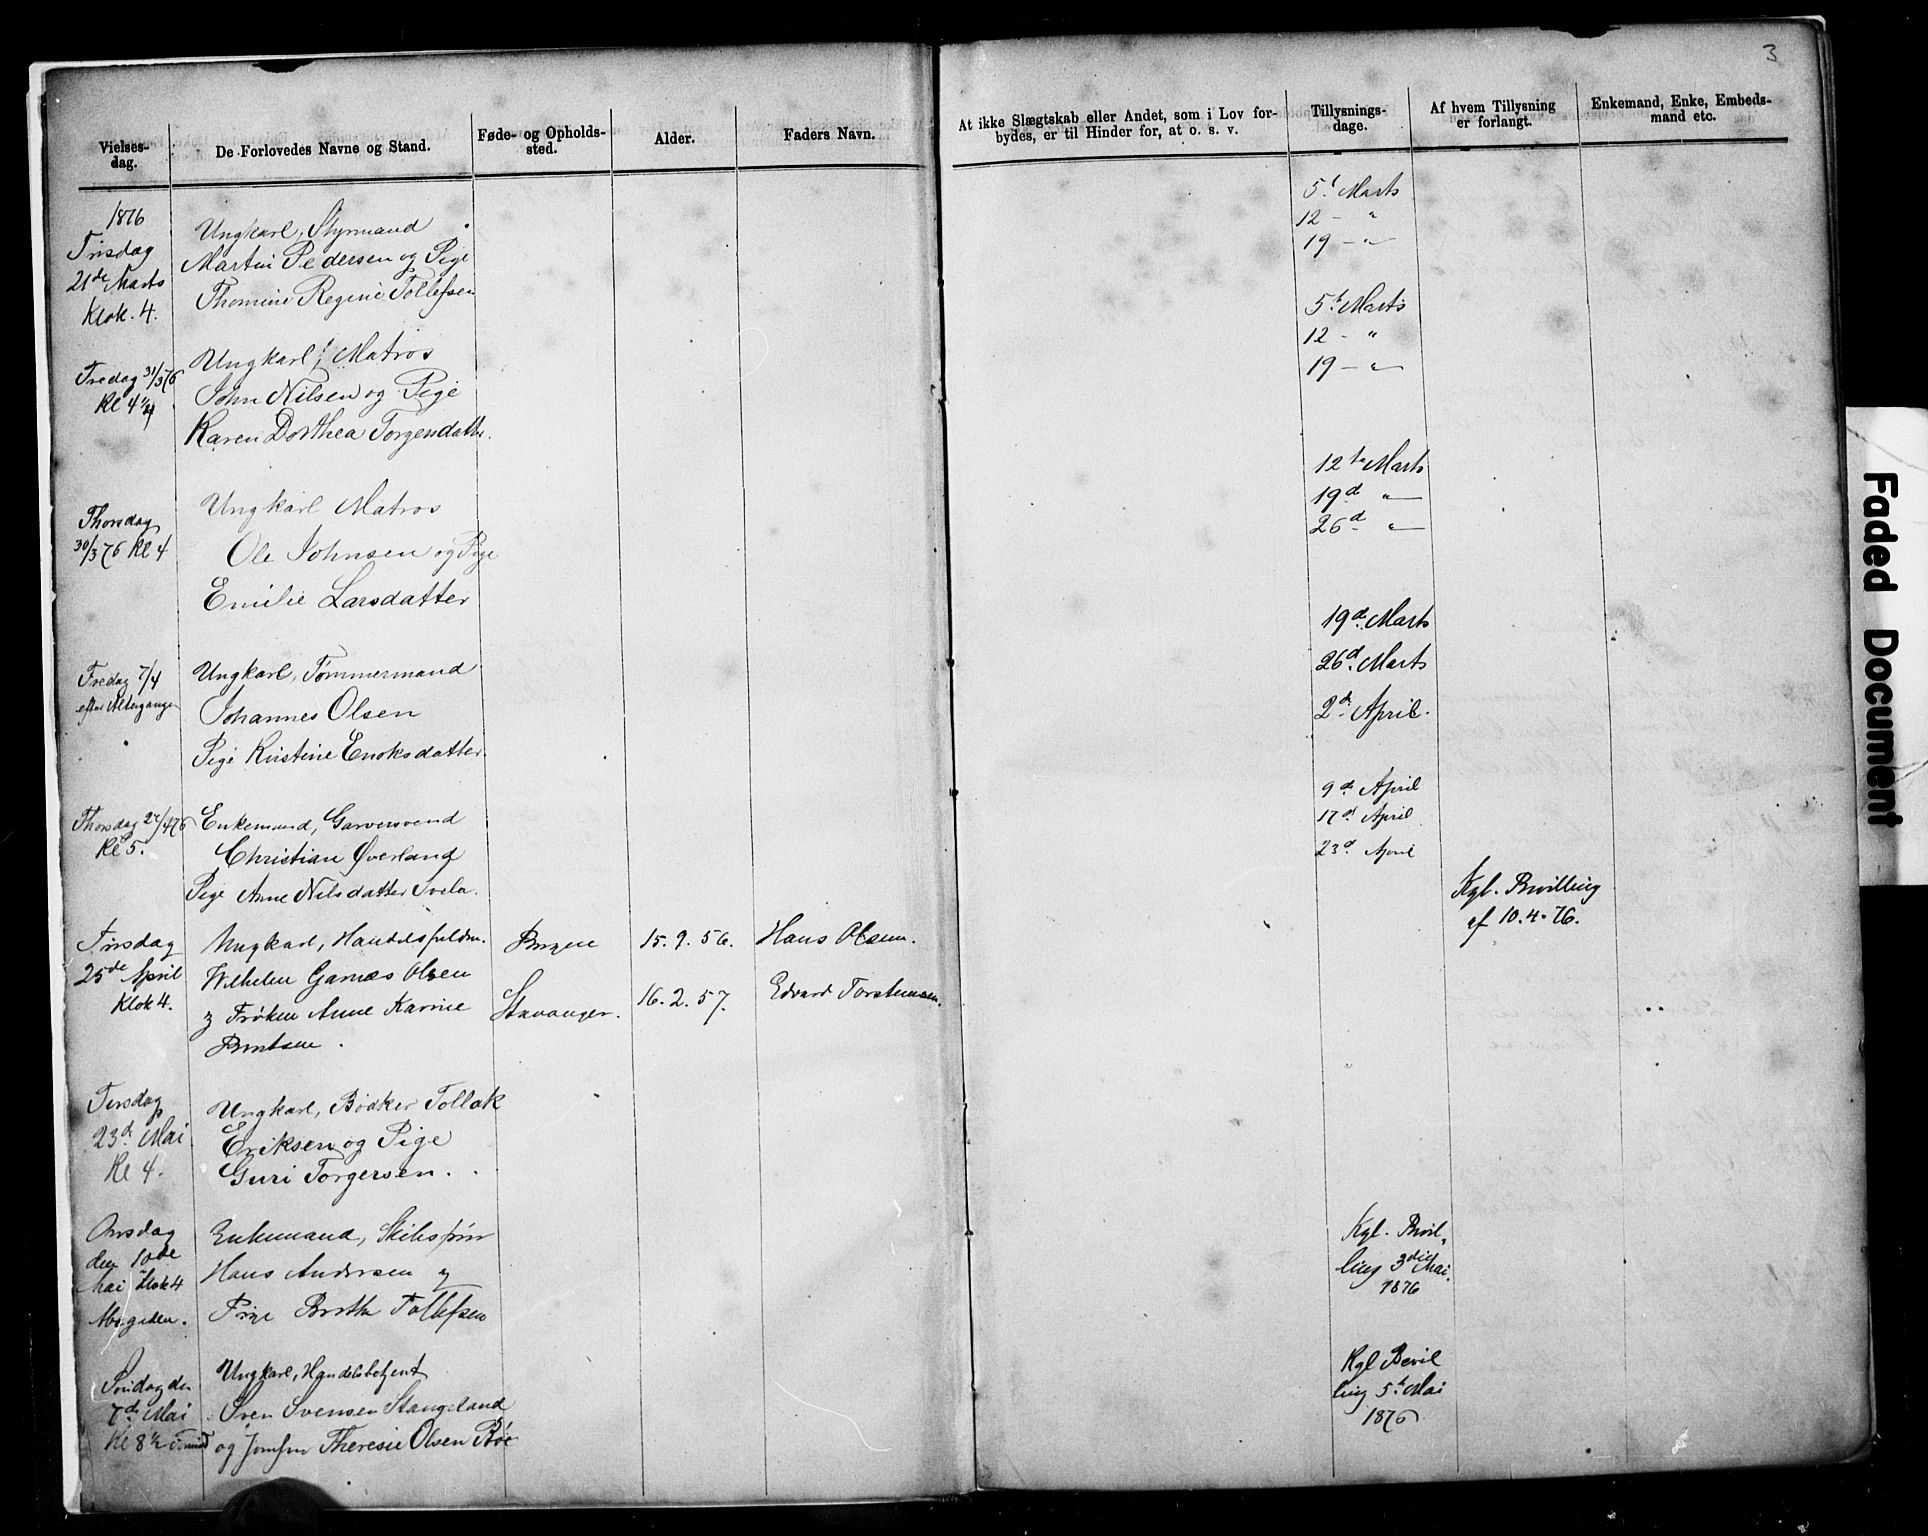 3
Vielses-
dag.
De Forlovedes Navne og Stand.
Føde- og Opholds-
sted.
Alder.
Faders Navn.
At ikke Slægtskab eller Andet, som i Lov for-
bydes, er til Hinder for, at o. s. v.
Tillysnings-
dage.
Af hvem Tillysning
er forlangt.
Enkemand, Enke, Embeds-
mand etc.
1876
Tirsdag
21de Marts
Klok. 4.
Ungkarl, Styrmand
Martin Pedersen og Pige
Thomine Regine Tollefsen
5t Marts
12 - "
19 - "
Fredag 31/3 76
Kl 4 1/4
Ungkarl, Matros
John Nilsen og Pige
Karen Dorthea Torgersdatter.
5t Marts
12 - "
19 - "
Thorsdag
30/3 76 Kl 4
Ungkarl Matros
Ole Johnsen og Pige
Emilie Larsdatter
12te Marts
19d "
26d "
Fredag 7/4
efter Altergangen
Ungkarl, Tømmermand
Johannes Olsen
Pige Kristine Enoksdatter.
19d. Marts
26d. Marts
2d. April.
Thorsdag 27/4 76
Kl 5.
Enkemand, Garversvend
Christian Øverland
Pige Anne Nilsdatter
9d. April
17d. April
23d. April
Tirsdag
25de April
Klok 4.
Ungkarl, Handelsfuldm.
Wilhelm Garnæs Olsen
og Frøken Anne Karine
Berntsen.
Bergen
Stavanger.
15. 9. 56.
16. 2. 57.
Hans Olsen.
Edvard Torstensen.
Kgl. Bevilling
af 10.4.76.
Tirsdag
23d. Mai
Kl 4.
Ungkarl, Bødker Tollak
Eriksen og Pige
Guri Torgersen.
Onsdag
den 10de
Mai Klok 4
Enkemand, Skibsfører
Hans Andersen og
Pige Berthe Tollefsen
Kgl. Bevil-
ling 3die Mai.
1876
Søndag den
7d. Mai
Kl 8 1/2
Ungkarl, Handelsbetjent
Sven Svensen Stangeland
og Jomfru Theresie Olsen Bøe
Kgl Bevil
ling 5t Mai
1876
Faded Document